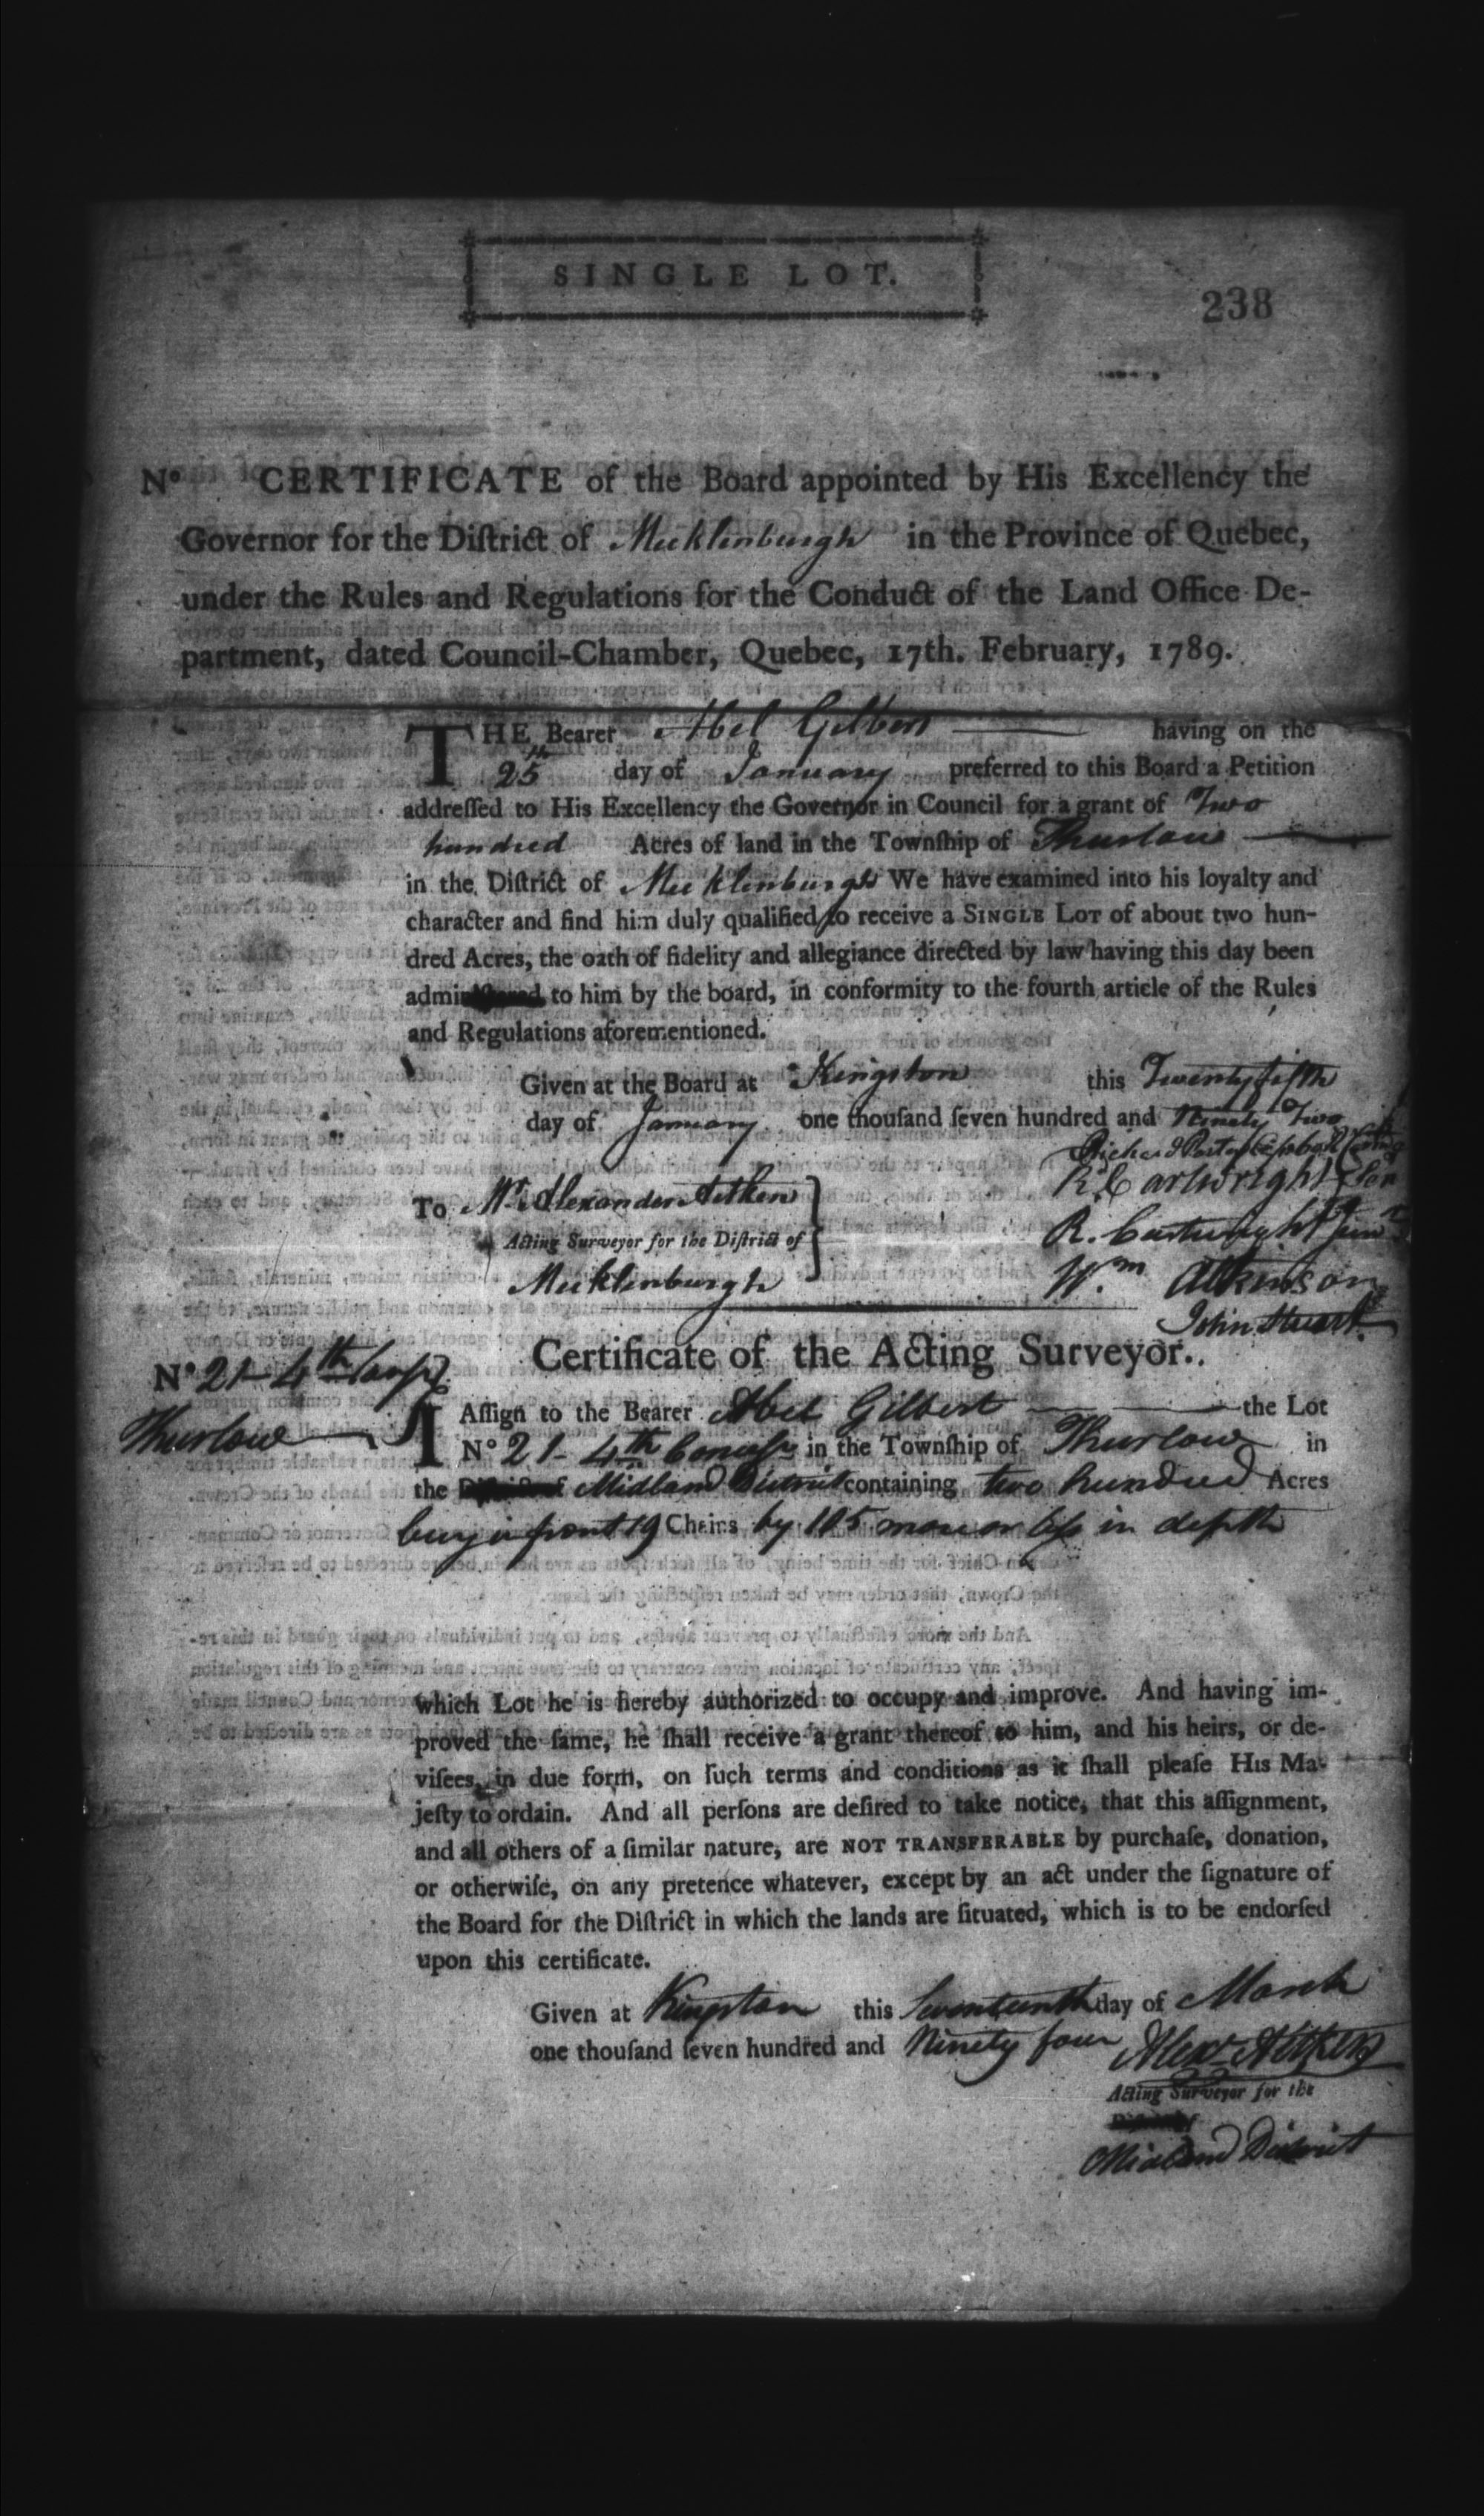 SINGLE LOT.
238
No CERTIFICATE of the Board appointed by His Excellency the
Governor for the Diſtrict of Mecklenburgh in the Province of Quebec,
under the Rules and Regulations for the Conduct of the Land Office De-
partment, dated Council-Chamber, Quebec, 17th. February, 1789.
THE Bearer Abel Gilbert having on the
25th day of January preferred to this Board a Petition
addreſſed to His Excellency the Governor in Council for a grant of Two
hundred Acres of land in the Townſhip of Thurlow
in the Diſtrict of Mecklenburgh We have examined into his loyalty and
character and find him duly qualified to receive a SINGLE LOT of about two hun-
dred Acres, the oath of fidelity and allegiance directed by law having this day been
to him by the board, in conformity to the fourth article of the Rules
and Regulations aforementioned.
Given at the Board at Kingston this Twenty fifth
day of January one thouſand ſeven hundred and Ninety Two
Richard Porter
R. Cartwright Sen
To Mr. Alexander Aitken
R. Cartwright Junr
Acting Surveyor for the Diſtrict of
Mecklenburgh
Wm Atkinson
John Stuart
Certificate of the Acting Surveyor.
No 21 4th
Thurlow
I Aſſign to the Bearer Abel Gilbert the Lot
No 21 4th in the Townſhip of Thurlow in
the Midland District containing two hundred Acres
being in front 19 Chains by 105 more or leſs in depth
which Lot he is hereby authorized to occupy and improve. And having im-
proved the ſame, he ſhall receive a grant thereof to him, and his heirs, or de-
viſees, in due form, on ſuch terms and conditions as it ſhall pleaſe His Ma-
jeſty to ordain. And all perſons are deſired to take notice, that this aſſignment,
and all others of a ſimilar nature, are NOT TRANSFERABLE by purchaſe, donation,
or otherwiſe, on any pretence whatever, except by an act under the ſignature of
the Board for the Diſtrict in which the lands are ſituated, which is to be endorſed
upon this certificate.
Given at Kingston this Seventeenth day of March
one thouſand ſeven hundred and Ninety four Alexr Aitken
Acting Surveyor for the
Midland District